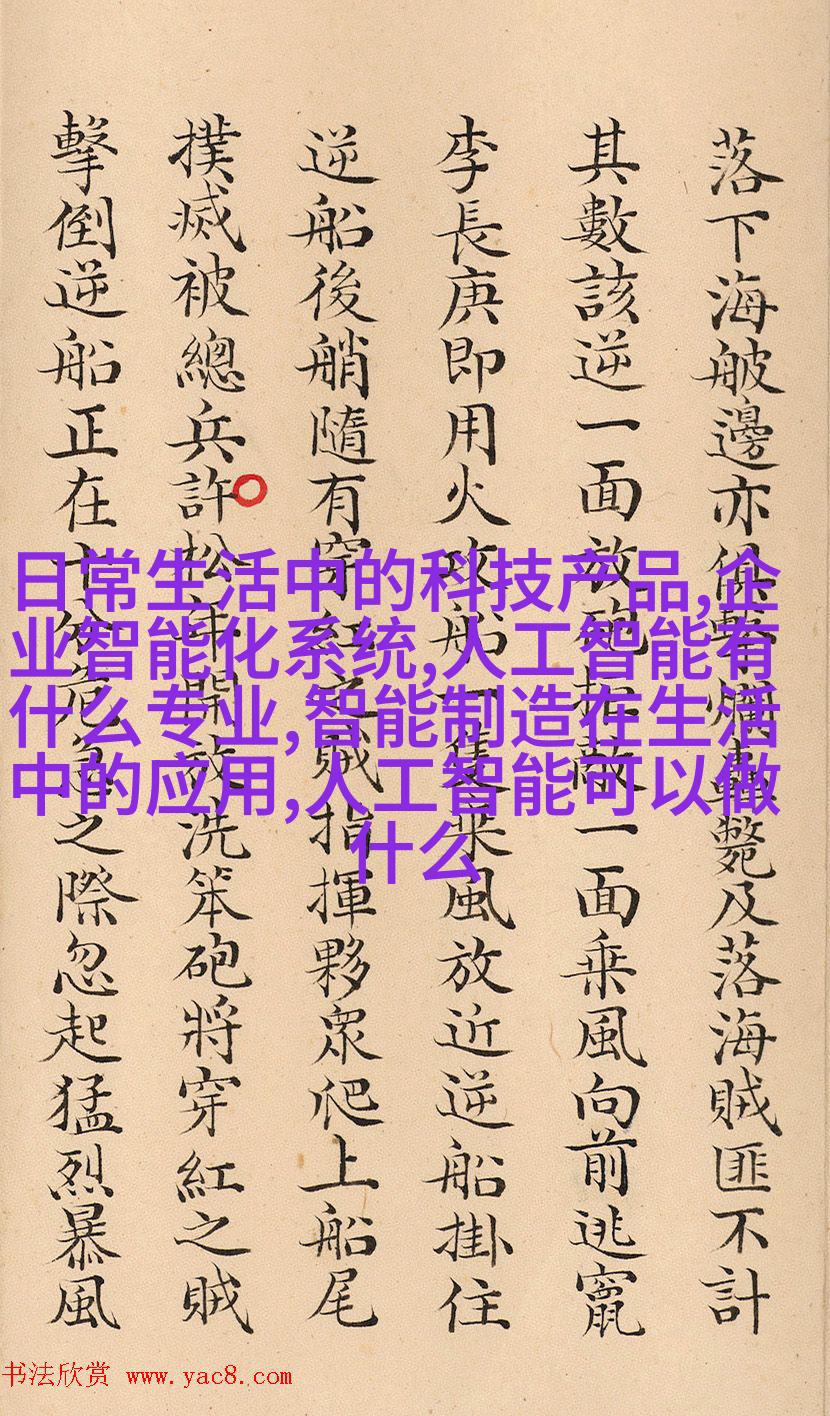 落下海邊亦俱擊爛轟斃及落海賊匪不計
其數該逆一面放砲拒敵一面乗風向前逃竄
李長庚即用火攻船一隻乗風放近逆船掛住
逆船後艄隨有穿紅之賊指揮夥眾爬上船尾
撲滅被總兵許松年開放洗笨砲將穿紅之賊
擊倒逆船正在十分危急之際忽起猛烈暴風
日常生活中的科技产品,企
业智能化系统,人工智能有
什么专业,智能制造在生活
中的应用,人工智能可以做
什么
书法欣赏 www.yac8.com